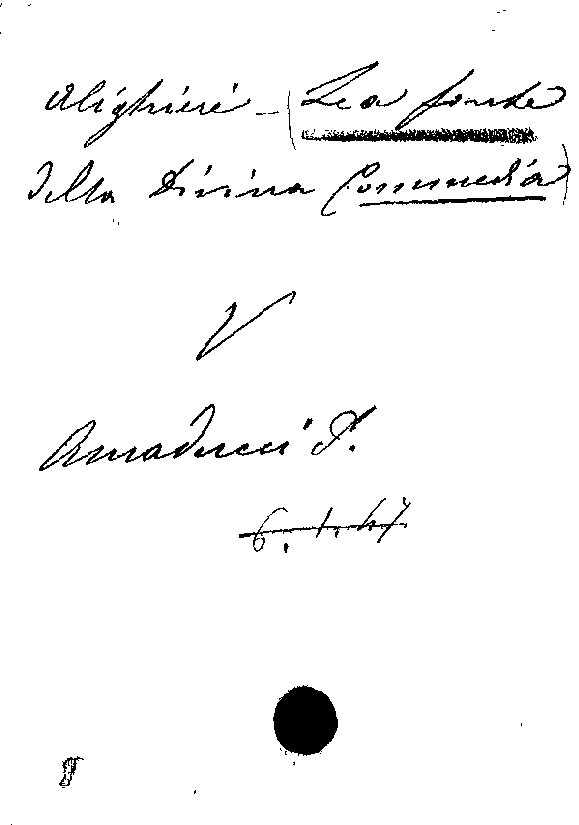 Alighieri - (La fonte
della Divina Commedia)
V
Amaducci P.
6.1.47